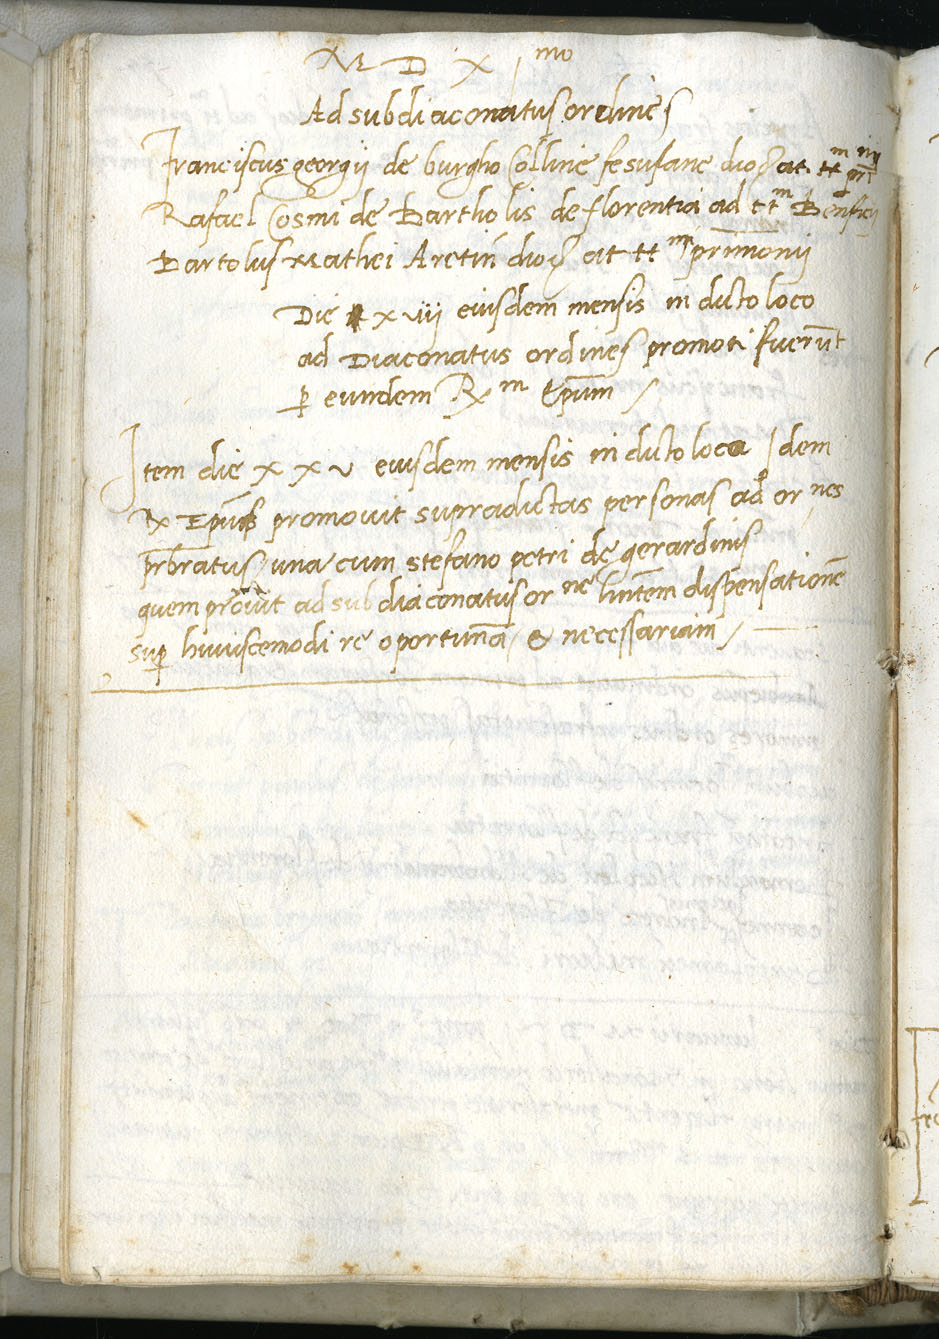 M D X mo
Ad subdiaconatus ordines
Franciscus georgij de burgho Colline fesulane dioc̄ at tt m
Rafael Cosmi de Bartholis de florentia ad tt m Benficij
Bartolus Mathei Aretin̄ dioc̄ at tt m p̄rimonij
Die xviij eiusdem mensis in dicto loco
ad Diaconatus ordines promoti fuerūt
ꝑ eundem R m Ep̄um /
Item die xxv eiusdem mensis in dicto loco Idem
R Ep̄us promovit supradictas personas ad or nes
pr̄sbratus / una cum stefano petri de gerardinis
quem prōvit ad subdiaconatus or ne dispensationē
suꝑ huiuscemodi re oportunā / & necessariam /